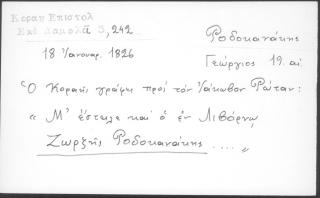 Κοραη Επιστολ
Εκδ Δαμαλᾶ 3, 242
18 Ἰανουαρ. 1826
Ροδοκανάκης
Γεώργιος 19. αἰ
Ὁ Κοραῆς γράφει πρός τόν Ἰάκωβον Ρώταν:
« Μ' ἔστειλε καί ὁ ἐν Λιβόρνῳ
Ζωρζῆς Ροδοκανάκης .... »